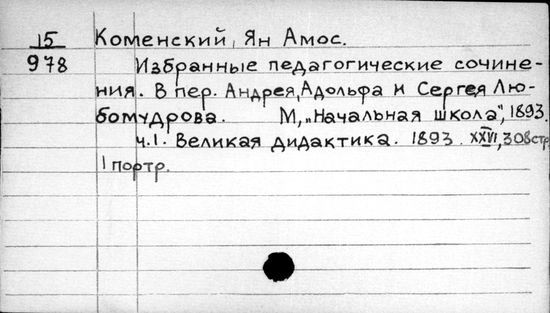 15 Коменский, Ян Амос.
978 Избранные педагогические сочине-
ния. В пер. Андрея, Адольфа и Сергея Лю-
бомудрова. М, „Начальная школа", 1893.
ч.1. Великая дидактика. 1893. XXVI, 308 стр.
1 портр.